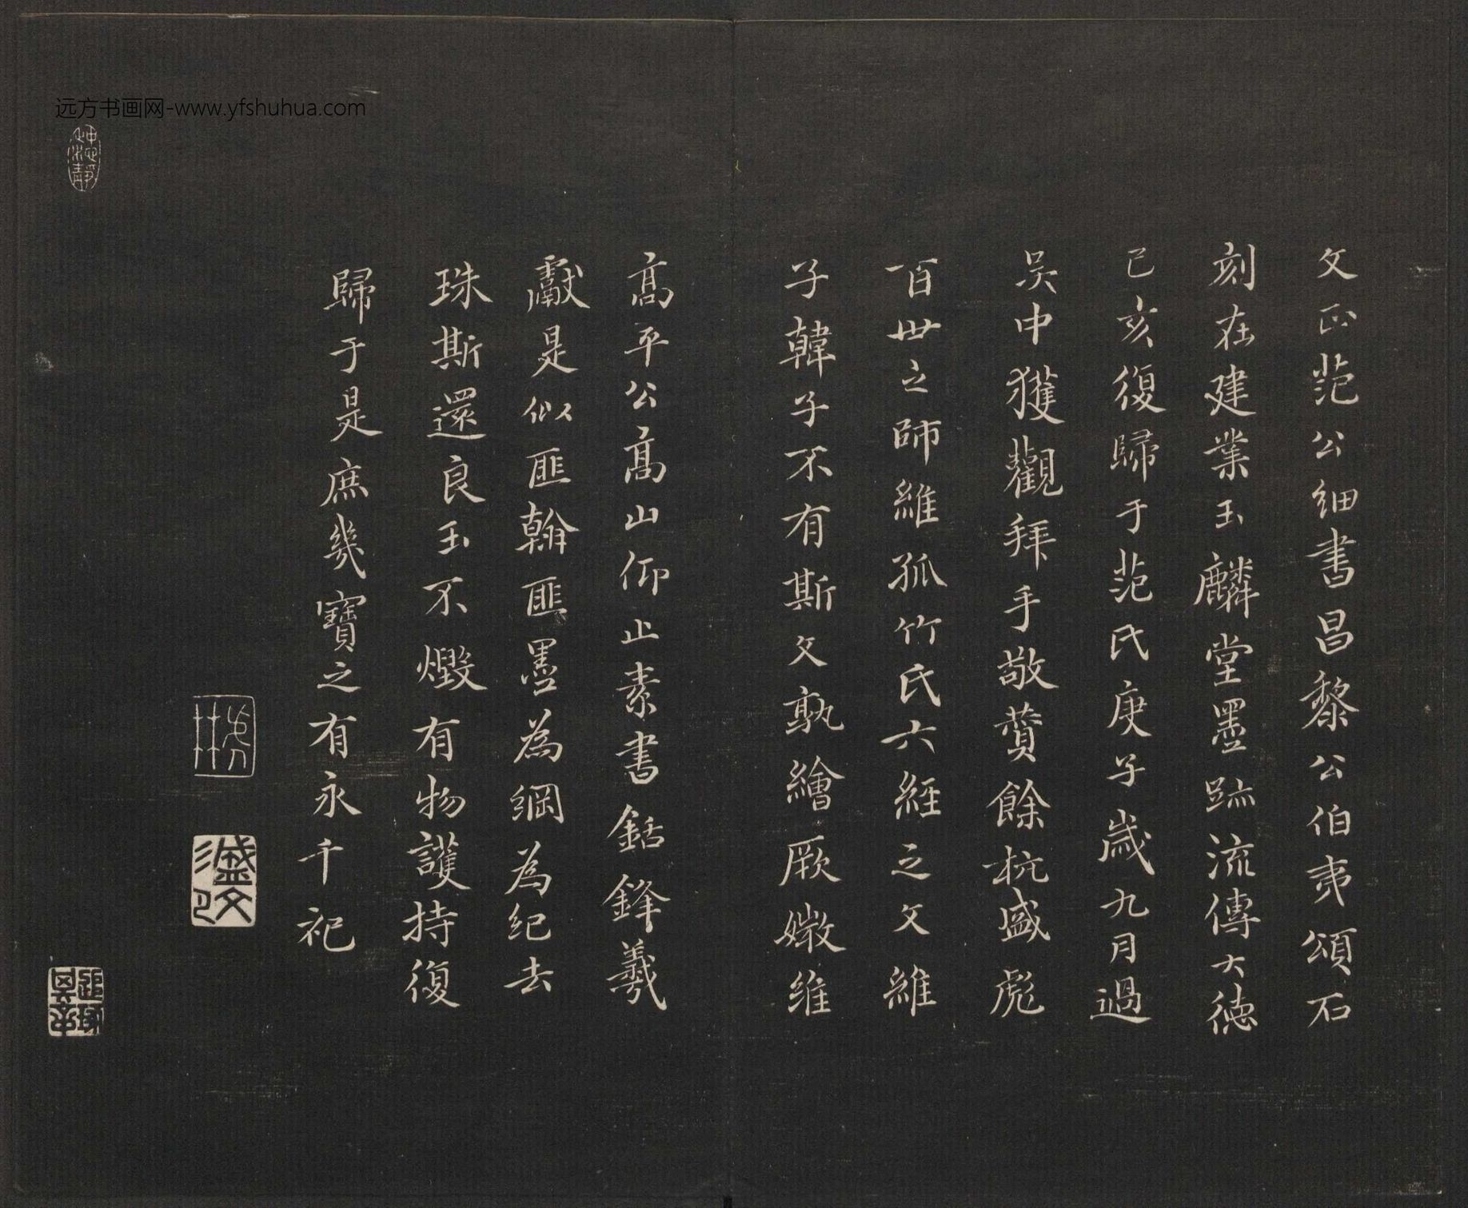 远方书画网-www.yfshuhua.com
文正范公細書昌黎公伯夷頌石
刻在建業玉麟堂墨跡流傳大德
己亥復歸于范氏庚子歲九月過
吴中獲觀拜手敬賛餘杭盛彪
百世之師維孤竹氏六經之文維
子韓子不有斯文孰繪厥媺維
高平公高山仰止素書銛鋒羲
獻是似匪翰匪墨為綱為紀去
珠斯還良玉不燬有物護持復
歸于是庶幾寶之有永千祀
盛彪文印